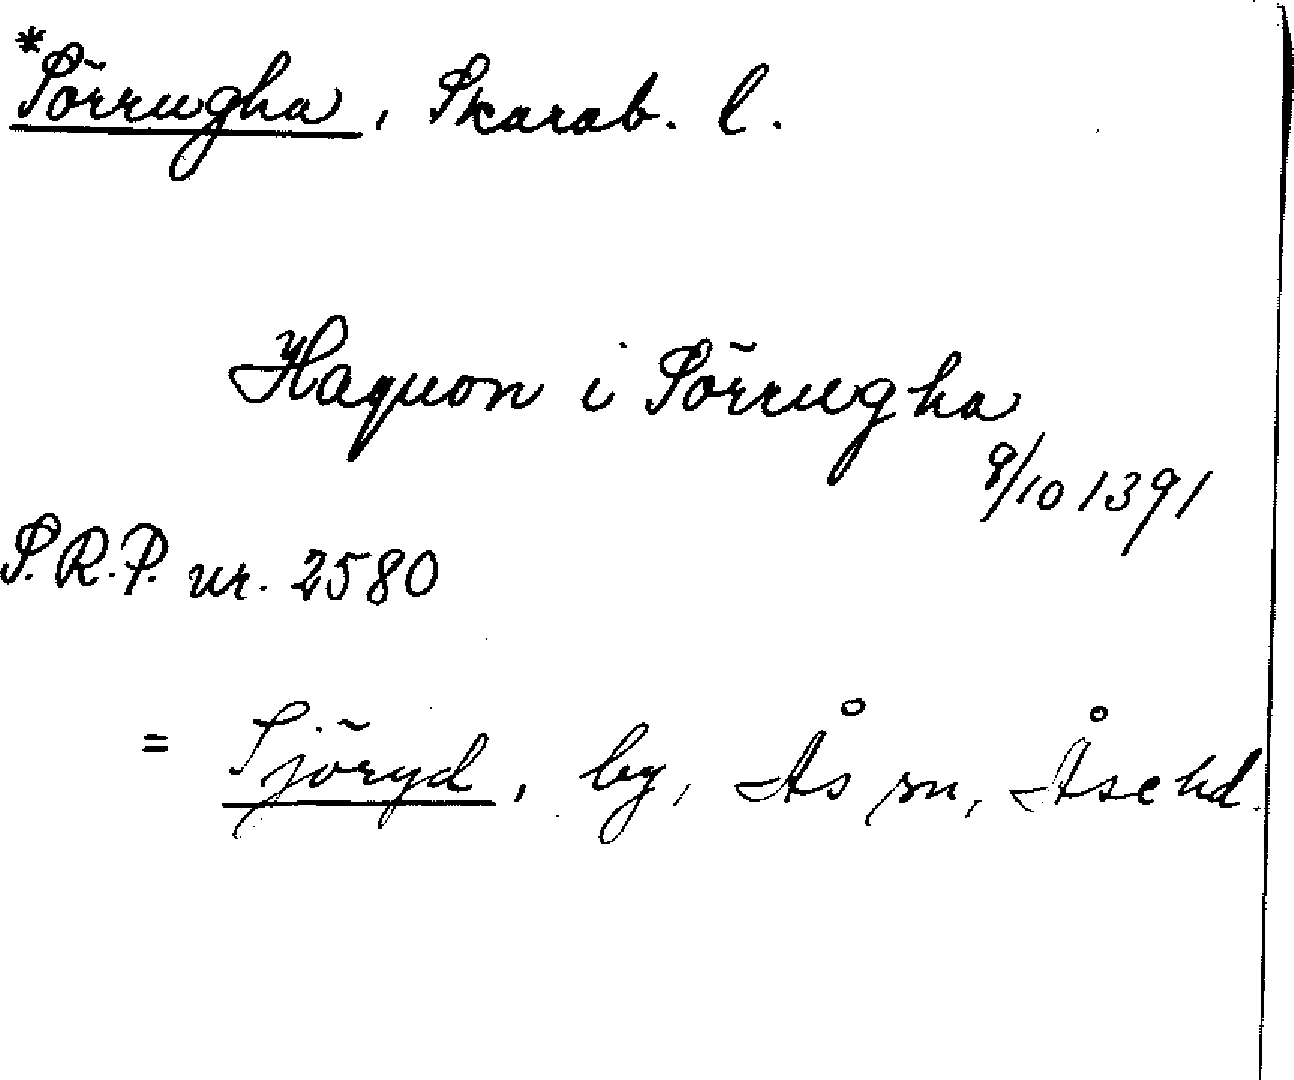 *Sörrugha, Skarab. l.
Haquon i Sörrugha
8/10 1391
S.R.P. nr. 2580
= Sjöryd, by, Ås sn, Åse hd.